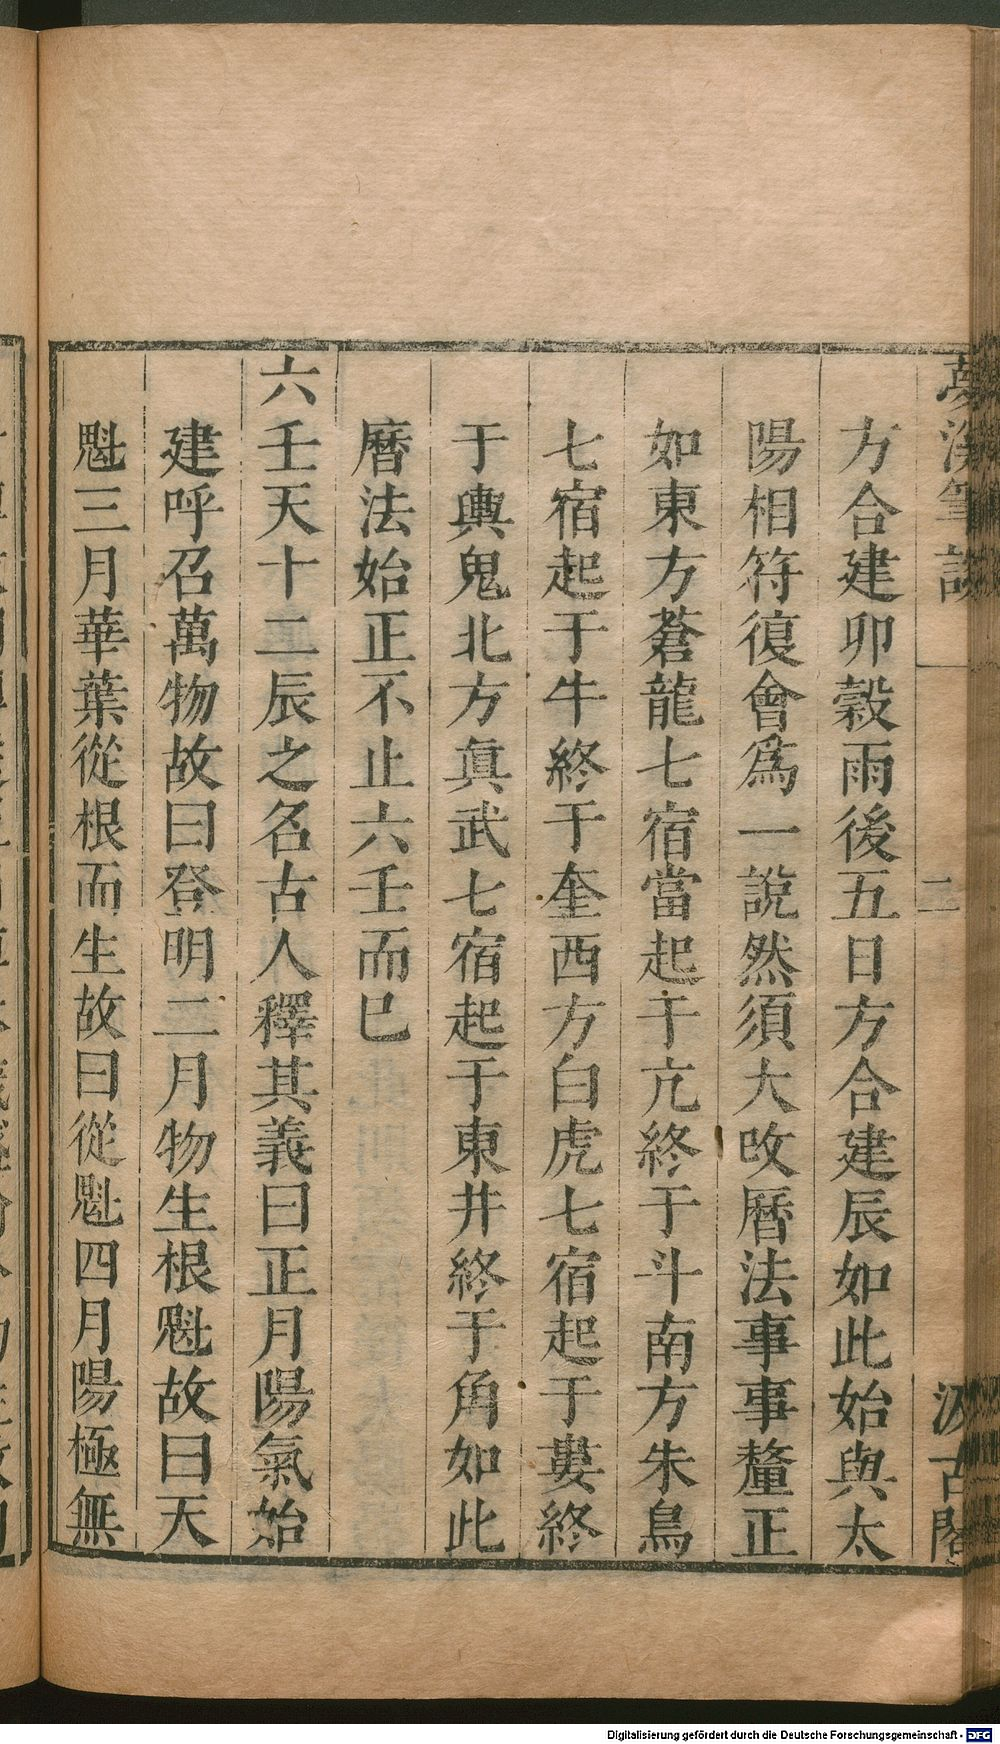 夢溪筆談 二 汲古閣
方合建卯穀雨後五日方合建辰如此始與太
陽相符復會爲一說然須大改曆法事事釐正
如東方蒼龍七宿當起于亢終于斗南方朱鳥
七宿起于牛終于奎西方白虎七宿起于婁終
于輿鬼北方真武七宿起于東井終于角如此
曆法始正不止六壬而已
六壬天十二辰之名古人釋其義曰正月陽氣始
建呼召萬物故曰登明二月物生根魁故曰天
魁三月華葉從根而生故曰從魁四月陽極無
Digitalisierung gefördert durch die Deutsche Forschungsgemeinschaft - DFG